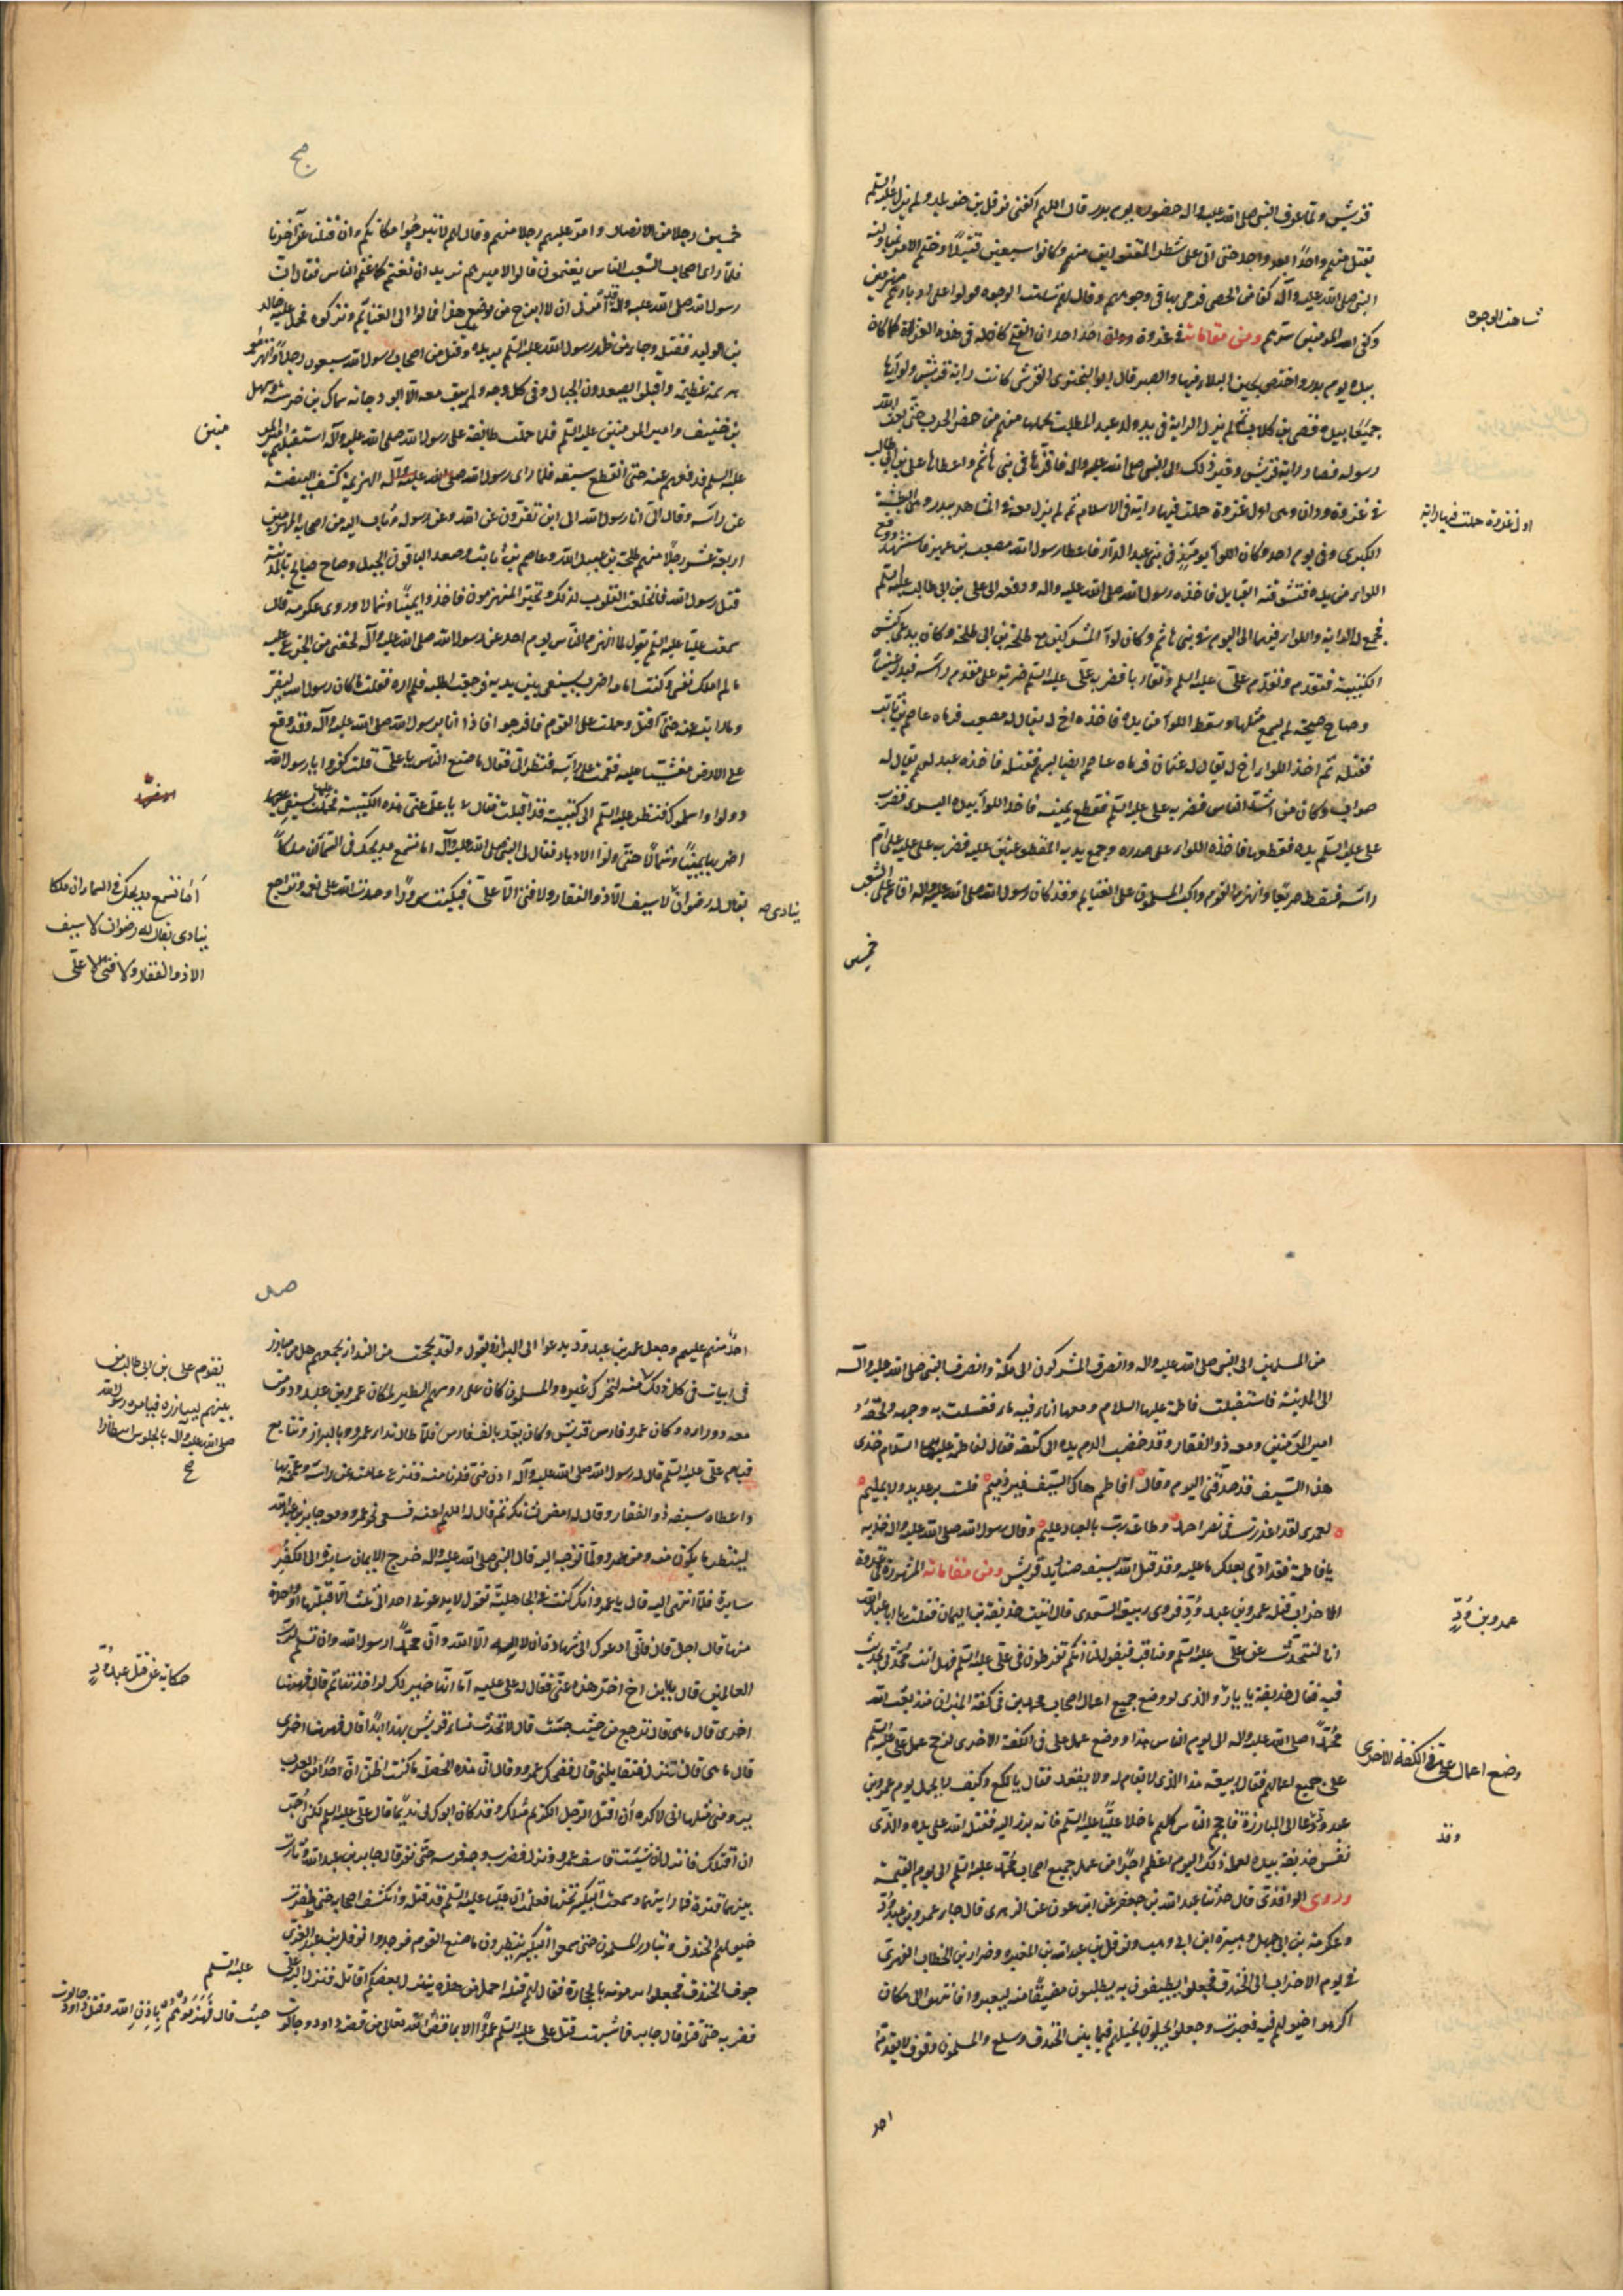 قريش ولما عرف النبي صلى الله عليه واله حضوره يوم بدر قال اللهم اكفني نوفل بن خويلد ولم يزل عليه السلم
يقتل منهم واحداً بعد واحد حتى اتى على شطر المقتولين منهم وكانوا سبعين قتيلاً وختم الامر بمناولته
النبي صلى الله عليه وآله كفا من الحصى فرمى بها في وجوههم وقال لهم شاهت الوجوه فولوا على ادبارهم منهزمين
وكفى الله المومنين شرهم ومن مقاماته في غزوة احد ان الفتح كان له في هذه الغزوة كما كان
بيده يوم بدر واختص بحسن البلاء فيها والصبر قال ابو البختري القرشي كانت راية قريش ولوآؤها
جميعا بيد قصي بن كلاب ثم لم يزل الراية في يد ولد عبد المطلب يحملها منهم من حضر الحرب حتى بعث الله
رسوله فصار راية قريش وغير ذلك الى النبي صلى الله عليه واله فاقرها في بني هاشم واعطاها على بن ابي طالب
في غزوة ودان وهي اول غزوة حملت فيها راية في الاسلام ثم لم يزل معه في المشاهد ببدر وهي البطشة
الكبرى وفي يوم احد وكان اللوآ يومئذ في بني عبد الدار فاعطاه رسول الله مصعب بن عمير فاستشهد ووقع
اللواء من يده فتشوقته القبايل فاخذه رسول الله صلى الله عليه واله ودفعه الى على بن ابي طالب عليه السلم
فجمع له الراية واللواء فهما الى اليوم في بني هاشم وكان لوآ المشركين مع طلحة بن ابي طلحة وكان يدعى كبش
الكتيبة فتقدم وتقدم علي عليه السلم وتقاربا فضربه علي عليه السلم ضربة على مقدم راسه فبدرت عينه
وصاح صيحة لم يسمع مثلها وسقط اللوآ من يده فاخذه اخ له يقال له مصعب فرماه عاصم بن ثابت
فقتله ثم اخذ اللواء اخ له يقال له عثمان فرماه عاصم ايضا بسهم فقتله فاخذه عبد لهم يقال له
صواب وكان من اشد الناس فضربه على عليه السلم فقطع يمينه فاخذ اللوآ بيده اليسرى فضرب
على عليه السلم يده فقطعها فاخذ اللواء على صدره وجمع يديه المقطوعتين عليه فضربه على عليه السلم على ام
راسه فسقط صريعا وانهزم القوم واكب المسلمون على الغنايم وقد كان رسول الله صلى الله عليه واله اقام على الشعب
خمسين
شاهت الوجوه
اول غزوة حملت فيها راية
خمسين رجلا من الانصار وامر عليهم رجلا منهم وقال لهم لا تبرحوا مكانكم وان قتلنا عن آخرنا
فلما راى اصحاب الشعب الناس يغتمون قالوا لاميرهم نريد ان نغتم كما غنم الناس فقال ان
رسول الله صلى الله عليه واله قد امرني ان لا ابرح من موضع هذا فمالوا الى الغنايم وتركوه فحمل عليه خالد
بن الوليد فقتله وجاء من ظهر رسول الله عليه السلم يريده وقتل من اصحاب رسول الله سبعون رجلا وانهزموا
هزيمة عظيمة واقبلوا يصعدون الجبال وفي كل وجه ولم يبق معه الا ابو دجانه سماك بن خرشة وسهل
بن حنيف وامير المومنين عليه السلم فلما حملت طائفة على رسول الله صلى الله عليه وآله استقبلهم امير المو
عليه السلم فدفعهم عنه حتى انقطع سيفه فلما راى رسول الله صلى الله عليه وآله الهزيمة كشف البيضة
عن راسه وقال الي انا رسول الله الى اين تفرون عن الله وعن رسوله وثاب اليه من اصحابه المنهزمين
اربعة عشر رجلا منهم طلحة بن عبيد الله وعاصم بن ثابت وصعد الباقون الجبل وصاح صايح بالمدينة
قتل رسول الله فانخلعت القلوب لذلك وتحير المنهزمون فاخذوا يمينا وشمالا وروى عكرمة قال
سمعت عليا عليه السلم يقول لما انهزم الناس يوم احد عن رسول الله صلى الله عليه وآله لحقني من الجزع عليه
ما لم املك نفسي وكنت امامه اضرب بسيفي بين يديه فرجعت اطلبه فلم اره فقلت ما كان رسول الله ليفر
وما رايته في القتلى وحملت على القوم فافرجوا فاذا انا برسول الله صلى الله عليه وآله وقد وقع
على الارض مغشيا عليه فقمت على راسه فنظر الي فقال ما صنع الناس يا على قلت كفروا يا رسول الله
وولوا واسلموك فنظر عليه السلم الى كتيبة قد اقبلت فقال يا على عني هذه الكتيبة فحملت عليها بسيفي
اضربها يمينا وشمالا حتى ولوا الادبار فقال لي النبي صلى الله عليه وآله اما تسمع مديحك في السمآ ان ملكاً
يقال له رضوان لا سيف الا ذو الفقار ولا فتى الا علي فبكيت سروراً وحمدت الله على نعمه وتراجع
ينادي
منين
أمّا تسمع مديحك في السماء ان ملكا
ينادي يقال له رضوان لا سيف
الا ذو الفقار ولا فتى الا علي
من المسلمين الى النبي صلى الله عليه واله وانصرف المشركون الى مكة وانصرف النبي صلى الله عليه وآله
الى المدينة فاستقبلته فاطمة عليها السلام ومعها اناء فيه ماء فغسلت به وجهه ولحقه
امير المؤمنين ومعه ذو الفقار وقد خضب الدم يده الى كتفه فقال لفاطمة عليها السلام خذي
هذا السيف فقد صدقني اليوم وقال افاطم هاك السيف غير ذميم فلست برعديد ولا بمليم
لعمري لقد اعذرت في نصر احمد وطاعة رب بالعباد عليم وقال رسول الله صلى الله عليه واله خذيه
يا فاطمة فقد ادى بعلك ما عليه وقد قتل الله بسيفه صناديد قريش ومن مقاماته المشهورة في غزوة
الاحزاب قتله عمرو بن عبد ود فروى ربيعة السعدي قال اتيت حذيفة بن اليمان فقلت يا ابا عبد الله
انا لنتحدث عن علي عليه السلم ومناقبه فيقولون لنا انكم تفرطون في علي عليه السلم فهل انت محدثي بحديث
فيه فقال حذيفة والذي لو وضع جميع اعمال اصحاب محمد في كفة الميزان منذ بعث الله
محمداً صلى الله عليه واله الى يوم الناس هذا ووضع عمل على في الكفة الاخرى لرجح عمل على عليه السلم
على جميع اعمالهم فقال ربيعة هذا الذي لا يقام له ولا يقعد فقال يا لكع وكيف لا يحمل يوم عمرو بن
عبد ود وقد دعا الى المبارزة فاحجم الناس كلهم ما خلا عليا عليه السلم فانه برز اليه فقتله الله على يده والذي
نفس حذيفة بيده لعمله ذلك اليوم اعظم اجرا من عمل جميع اصحاب محمد عليه السلم الى يوم القيمة
وروى الواقدي قال حدثنا عبد الله بن جعفر عن ابن عون عن الزهري قال جاء عمرو بن عبد ود
وعكرمة بن ابي جهل وهبيرة ابن ابي وهب ونوفل بن عبد الله بن المغيره وضرار بن الخطاب الفهري
في يوم الاحزاب الى الخندق فجعلوا يطيفون به يطلبون مضيقا منه ليعبروا فانتهوا الى مكان
اكرهوا خيولهم فيه فعبرت وجعلوا يجيلون خيلهم فيما بين الخندق وسلع والمسلمون وقوف لا يقدم
احد
عمرو بن ودّ
وضع اعمال علي في الكفة الاخرى
وقد
احد منهم عليهم وجعل عمرو بن عبد ود يدعوا الى البراز ويقول ولقد بححت من النداء بجمعهم هل من مبارز
في ابيات في كل ذلك والمسلمون كان على روسهم الطير لمكان عمرو بن عبد ود ومن
معه ووراءه وكان عمرو فارس قريش وكان يعد بالف فارس فلما طال نداء عمرو بالبراز وتتابع
قيام على عليه السلم قال له رسول الله صلى الله عليه وآله ادن مني فدنا منه فنزع عمامته عن راسه وعممه بها
واعطاه سيفه ذو الفقار وقال له امض لشانك ثم قال اللهم اعنه فسعى نحو عمرو ومعه جابر بن عبد الله
لينظر ما يكون منه ومن عمرو ولما توجه اليه قال النبي صلى الله عليه واله خرج الايمان سايره الى الكفر
سايره فلما انتهى اليه قال يا عمرو انك كنت في الجاهلية تقول لا يدعوني احد الى ثلث الا قبلتها او واحدة
منها قال اجل قال فاني ادعوك الى شهادة ان لا اله الا الله وان محمداً رسول الله وان تسلم لرب
العالمين قال يا ابن اخ اخر هذه عني فقال له على عليه اما انها خير لك لو اخذتها ثم قال فههنا
اخرى قال ما هي قال ترجع من حيث جئت قال لا تحدث نساء قريش بهذا ابداً قال فههنا اخرى
قال ما هي قال تنزل فتقاتلني قال فضحك عمرو وقال ان هذه الخصلة ما كنت اظن ان احدا من العرب
يرومني مثلها اني لاكره أن اقتل الرجل الكريم مثلك وقد كان ابوك لي نديما قال علي عليه السلم لكني أحب
ان اقتلك فانزل ان شئت فاسف عمرو ونزل فضرب وجه فرسه حتى نفر قال جابر بن عبد الله وثارت
بينهما قترة فما رايتهما وسمعت التكبير تحتها فعلمت ان عليا عليه السلم قد قتله وانكشف اصحابه حتى طفرت
خيولهم الخندق وتبادر المسلمون حين سمعوا التكبير ينظرون ما صنع القوم فوجدوا نوفل بن عبد العزى
جوف الخندق فجعلوا يرمونه بالحجارة فقال لهم قتلة اجمل من هذه ينزل بعضكم اقاتله فنزل اليه على
فضربه حتى قتله قال جابر فما شبهت قتل على عليه السلم عمرواً الا بما قص الله تعالى من قصة داود وجالوت
يقوم على بن ابي طالب من
بينهم ليبارزه فيامره رسول الله
صلى الله عليه وآله بالجلوس
صح
حكاية عن قتل عبد ودّ
عليه السلم
حيث قال فهزموهم باذن الله وقتل داود جالوت